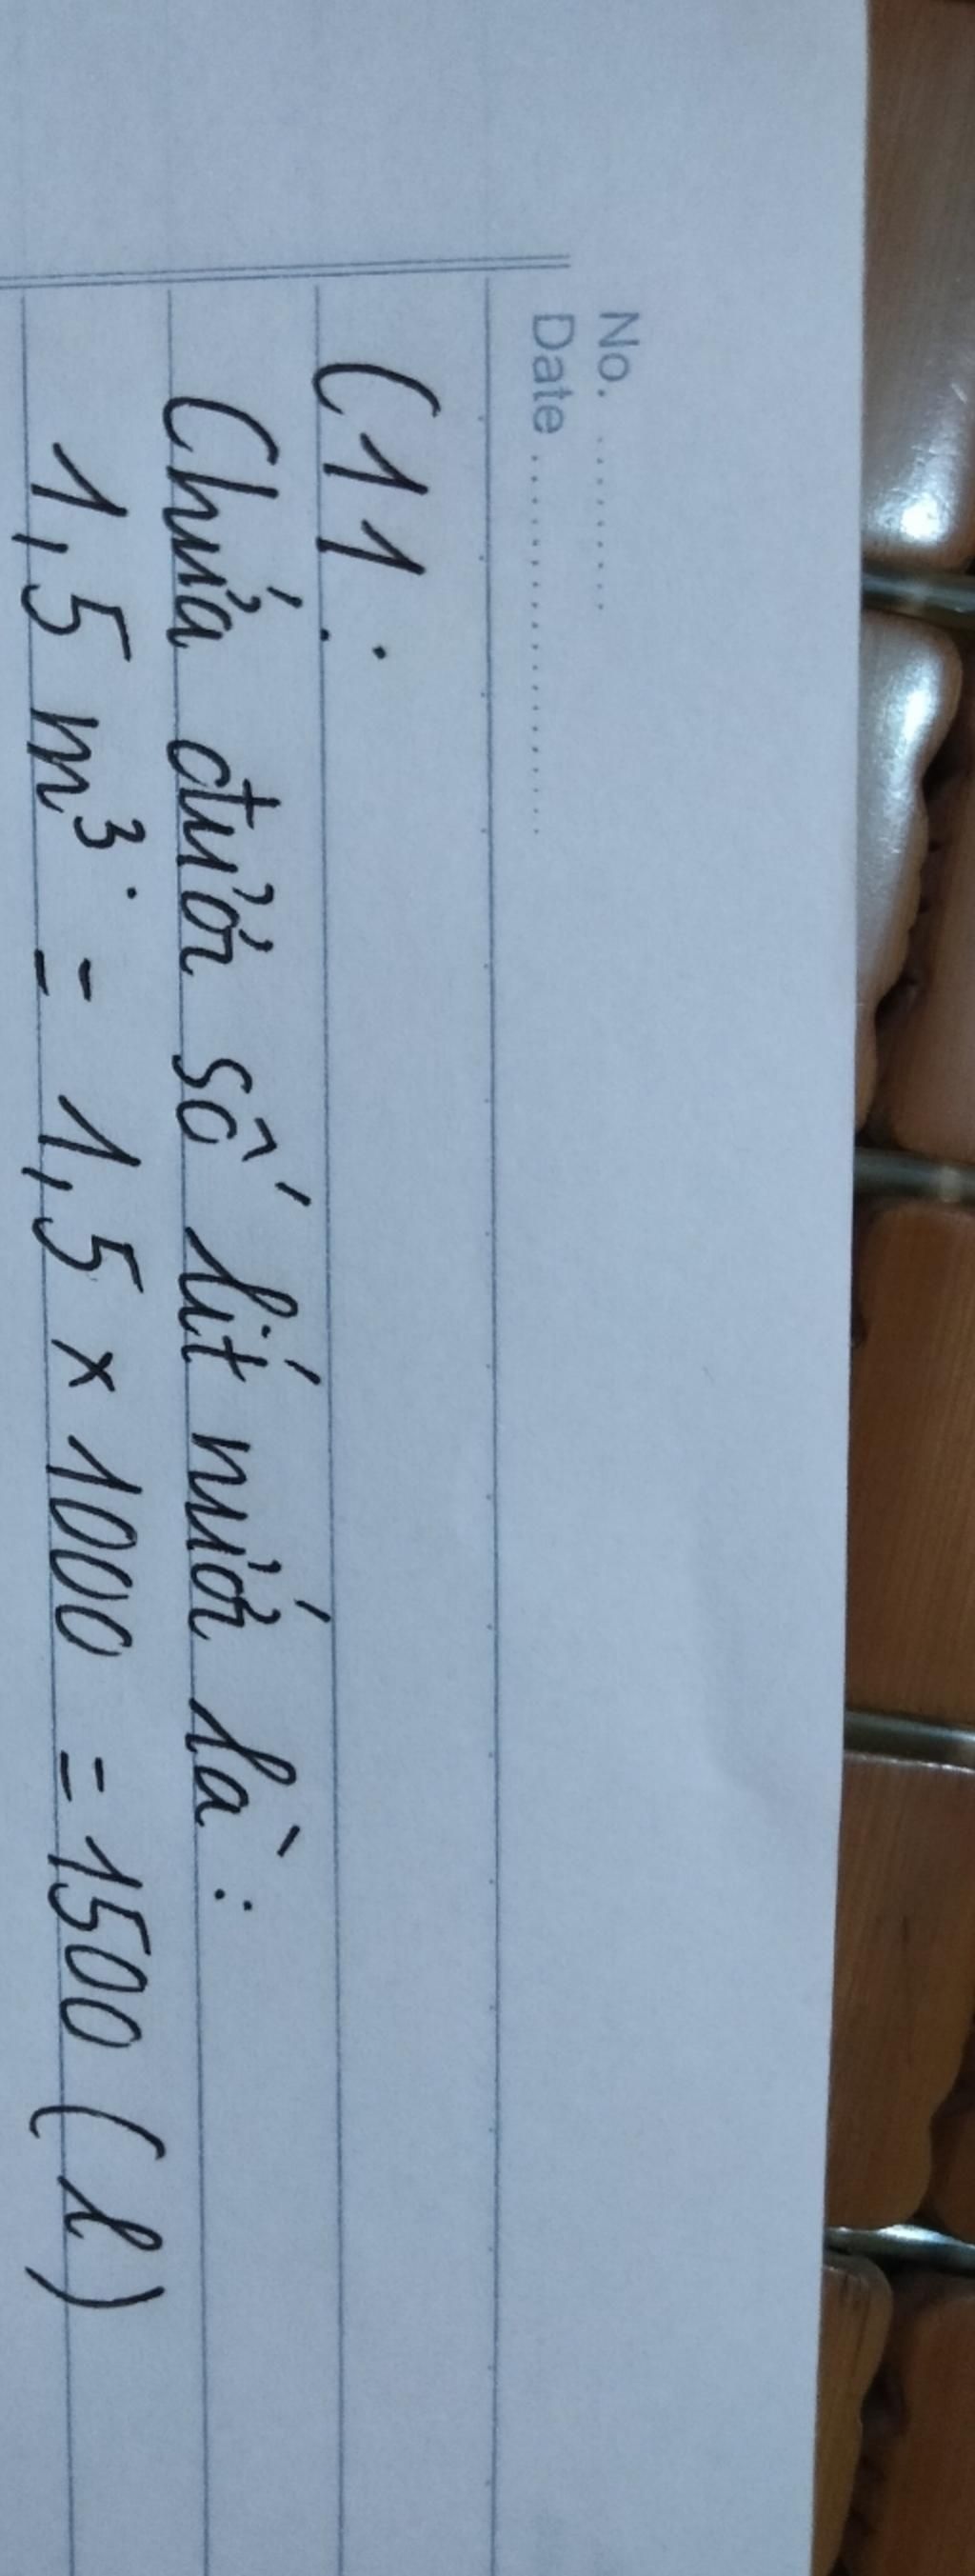 No. ............
Date ..............................
C11:
Chứa được số lít nước là:
1,5 m³ = 1,5 x 1000 = 1500 (l)